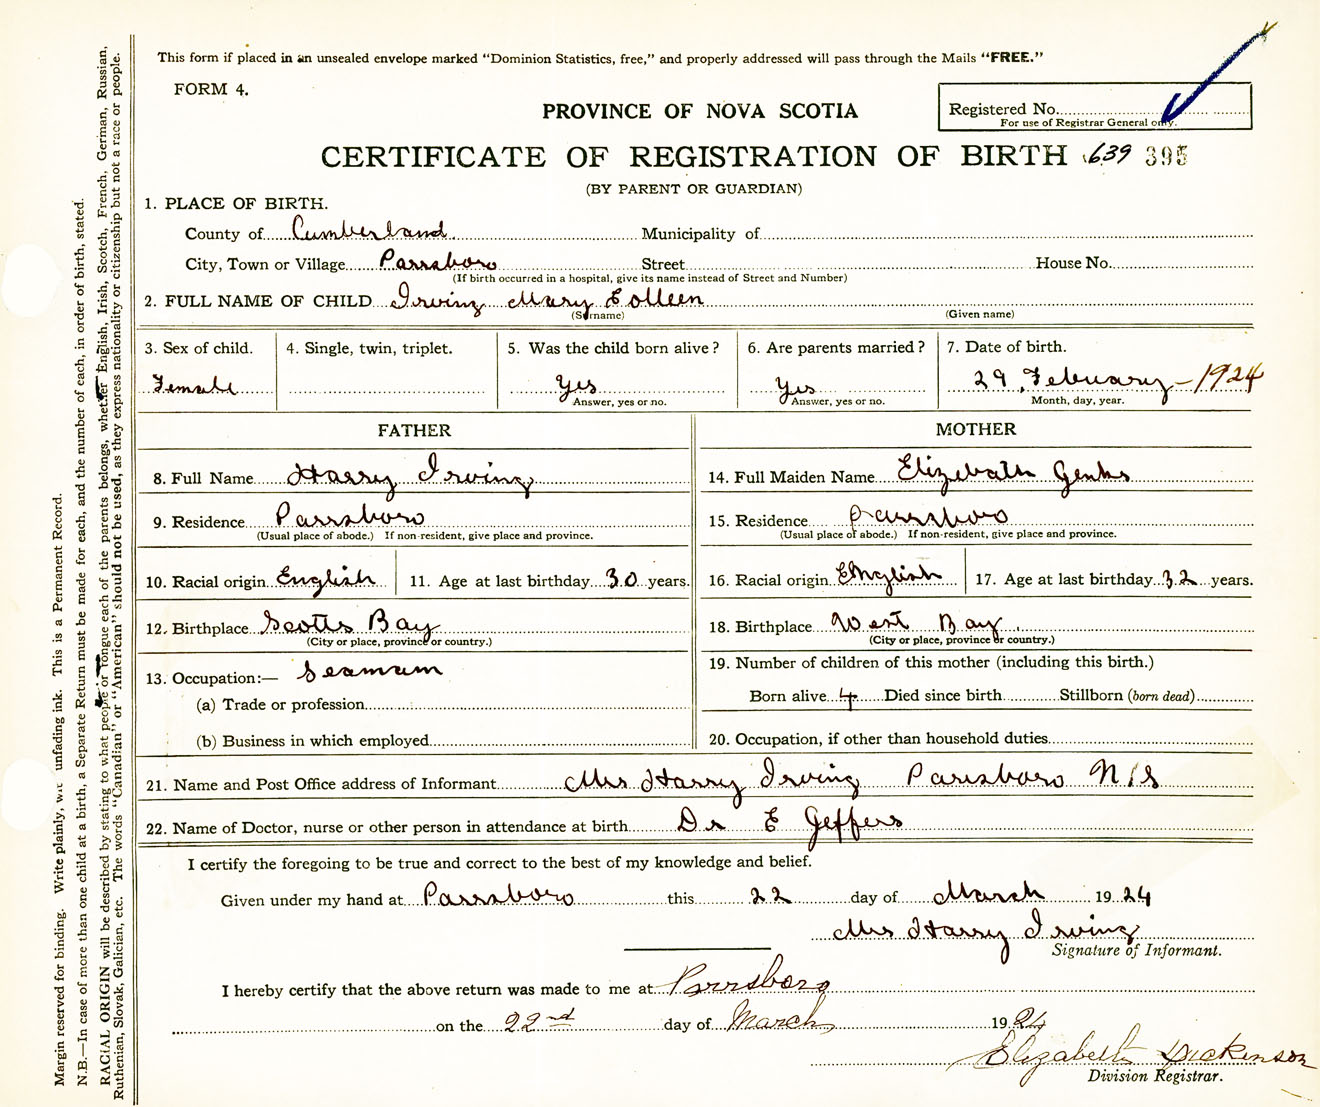 This form if placed in an unsealed envelope marked "Dominion Statistics, free," and properly addressed will pass through the Mails "FREE."
FORM 4.
PROVINCE OF NOVA SCOTIA
Registered No.
For use of Registrar General only.
CERTIFICATE OF REGISTRATION OF BIRTH 639 395
(BY PARENT OR GUARDIAN)
1. PLACE OF BIRTH.
County of Cumberland Municipality of
City, Town or Village Parrsboro Street House No.
(If birth occurred in a hospital, give its name instead of Street and Number)
2. FULL NAME OF CHILD Irving Mary Eolleen
(Surname) (Given name)
3. Sex of child. 4. Single, twin, triplet. 5. Was the child born alive? 6. Are parents married? 7. Date of birth.
Female Yes Yes 29 February - 1924
Answer, yes or no. Answer, yes or no. Month, day, year.
FATHER MOTHER
8. Full Name Harry Irving 14. Full Maiden Name Elizebath Genks
9. Residence Parrsboro 15. Residence Parrsboro
(Usual place of abode.) If non-resident, give place and province. (Usual place of abode.) If non-resident, give place and province.
10. Racial origin English 11. Age at last birthday 30 years. 16. Racial origin English 17. Age at last birthday 32 years.
12. Birthplace Scotts Bay 18. Birthplace West Bay
(City or place, province or country.) (City or place, province or country.)
13. Occupation:— Seamum 19. Number of children of this mother (including this birth.)
(a) Trade or profession Born alive 4 Died since birth Stillborn (born dead)
(b) Business in which employed 20. Occupation, if other than household duties
21. Name and Post Office address of Informant Mrs Harry Irving Parrsboro N/S
22. Name of Doctor, nurse or other person in attendance at birth Dr E Geffers
I certify the foregoing to be true and correct to the best of my knowledge and belief.
Given under my hand at Parrsboro this 22 day of March 1924
Mrs Harry Irving
Signature of Informant.
I hereby certify that the above return was made to me at Parrsboro
on the 22nd day of March 1924
Elizabeth Dickinson
Division Registrar.
Margin reserved for binding. Write plainly, unfading ink. This is a Permanent Record.
N.B.—In case of more than one child at a birth, a Separate Return must be made for each, and the number of each, in order of birth, stated.
RACIAL ORIGIN will be described by stating to what people or tongue each of the parents belongs, whether English, Irish, Scotch, French, German, Russian,
Ruthenian, Slovak, Galician, etc. The words "Canadian" or "American" should not be used, as they express nationality or citizenship but not a race or people.